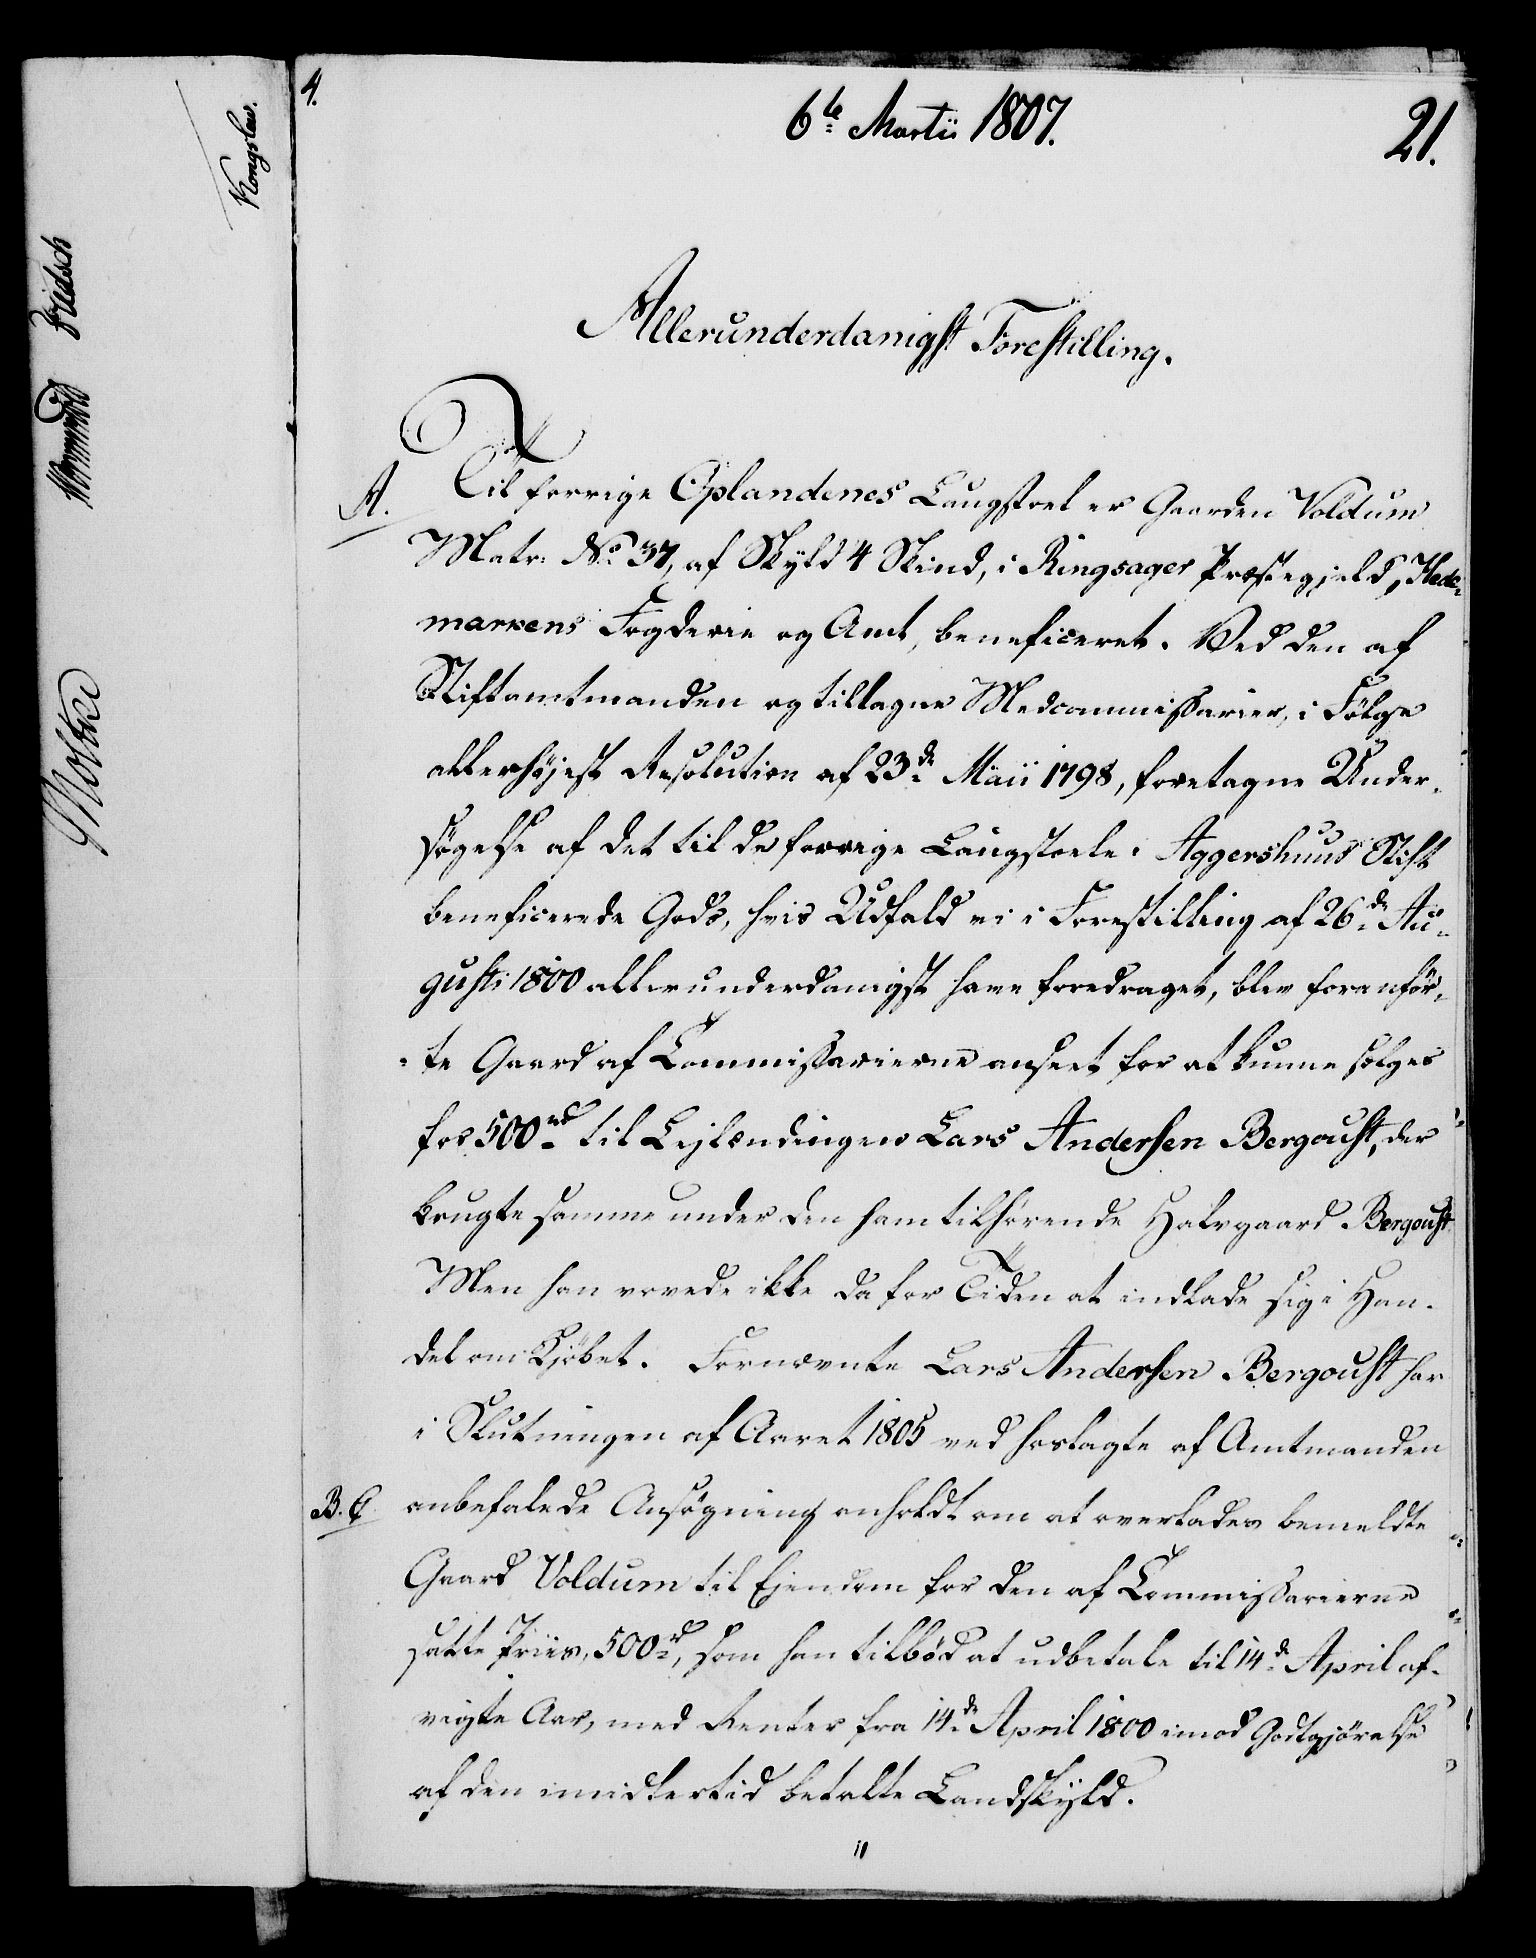 4.
6te Martii 1807.
21.
Kongslew.
Fridsch
Moltke
Allerunderdanigst Forestilling.
A. Til forrige Oplandenes Laugstoel er Gaarden Voldum
Matr: No 37, af Skyld 4 Skind, i Ringsager Præstegjeld, Hede-
markens Fogderie og Amt, beneficeret. Ved den af
Stiftamtmanden og tillagne Medcommissarier, i Følge
allerhøjest Resolution af 23de Maii 1798, foretagne Under-
søgelse af det til de forrige Laugstoele i Aggershuus Stift
beneficerede Gods, hvis Udfald vi i Forestilling af 26de Au-
gusti 1800 allerunderdanigst have foredraget, blev foranför-
te Gaard af Commissarierne anseet for at kunne sælges
for 500 rd til Lejlændingen Lars Andersen Bergoust, der
brugte samme under den ham tilhørende Halvgaard Bergoust.
Men han vovede ikke da for Tiden at indlade sig i Han-
del om Kjøbet. Fornævnte Lars Andersen Bergoust har
i Slutningen af Aaret 1805 ved hoslagte af Amtmanden
B. C. anbefalede Ansøgning anholdt om at overlades bemeldte
Gaard Voldum til Ejendom for den af Commissarierne
satte Priis, 500 rd, som han tilbød at udbetale til 14de April af-
vigte Aar, med Renter fra 14de April 1800 imod Godtgjörelse
af den imidlertid betalte Landskyld.